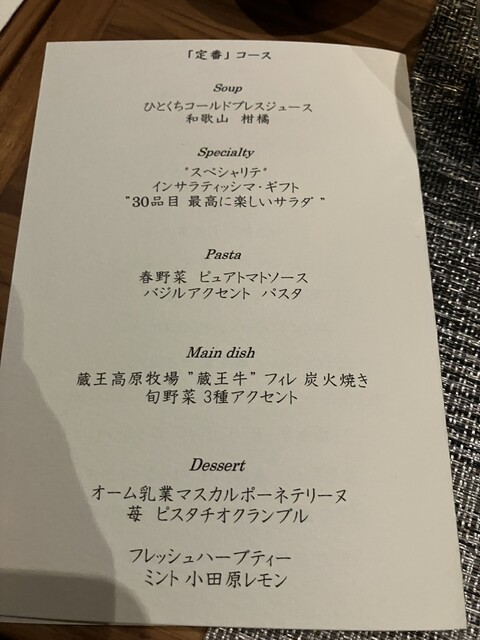 「定番」コース
Soup
ひとくちコールドプレスジュース
和歌山 柑橘
Specialty
"スペシャリテ"
インサラティッシマ・ギフト
"30品目 最高に楽しいサラダ"
Pasta
春野菜 ピュアトマトソース
バジルアクセント パスタ
Main dish
蔵王高原牧場 "蔵王牛" フィレ 炭火焼き
旬野菜 3種アクセント
Dessert
オーム乳業マスカルポーネテリーヌ
苺 ピスタチオクランブル
フレッシュハーブティー
ミント 小田原レモン